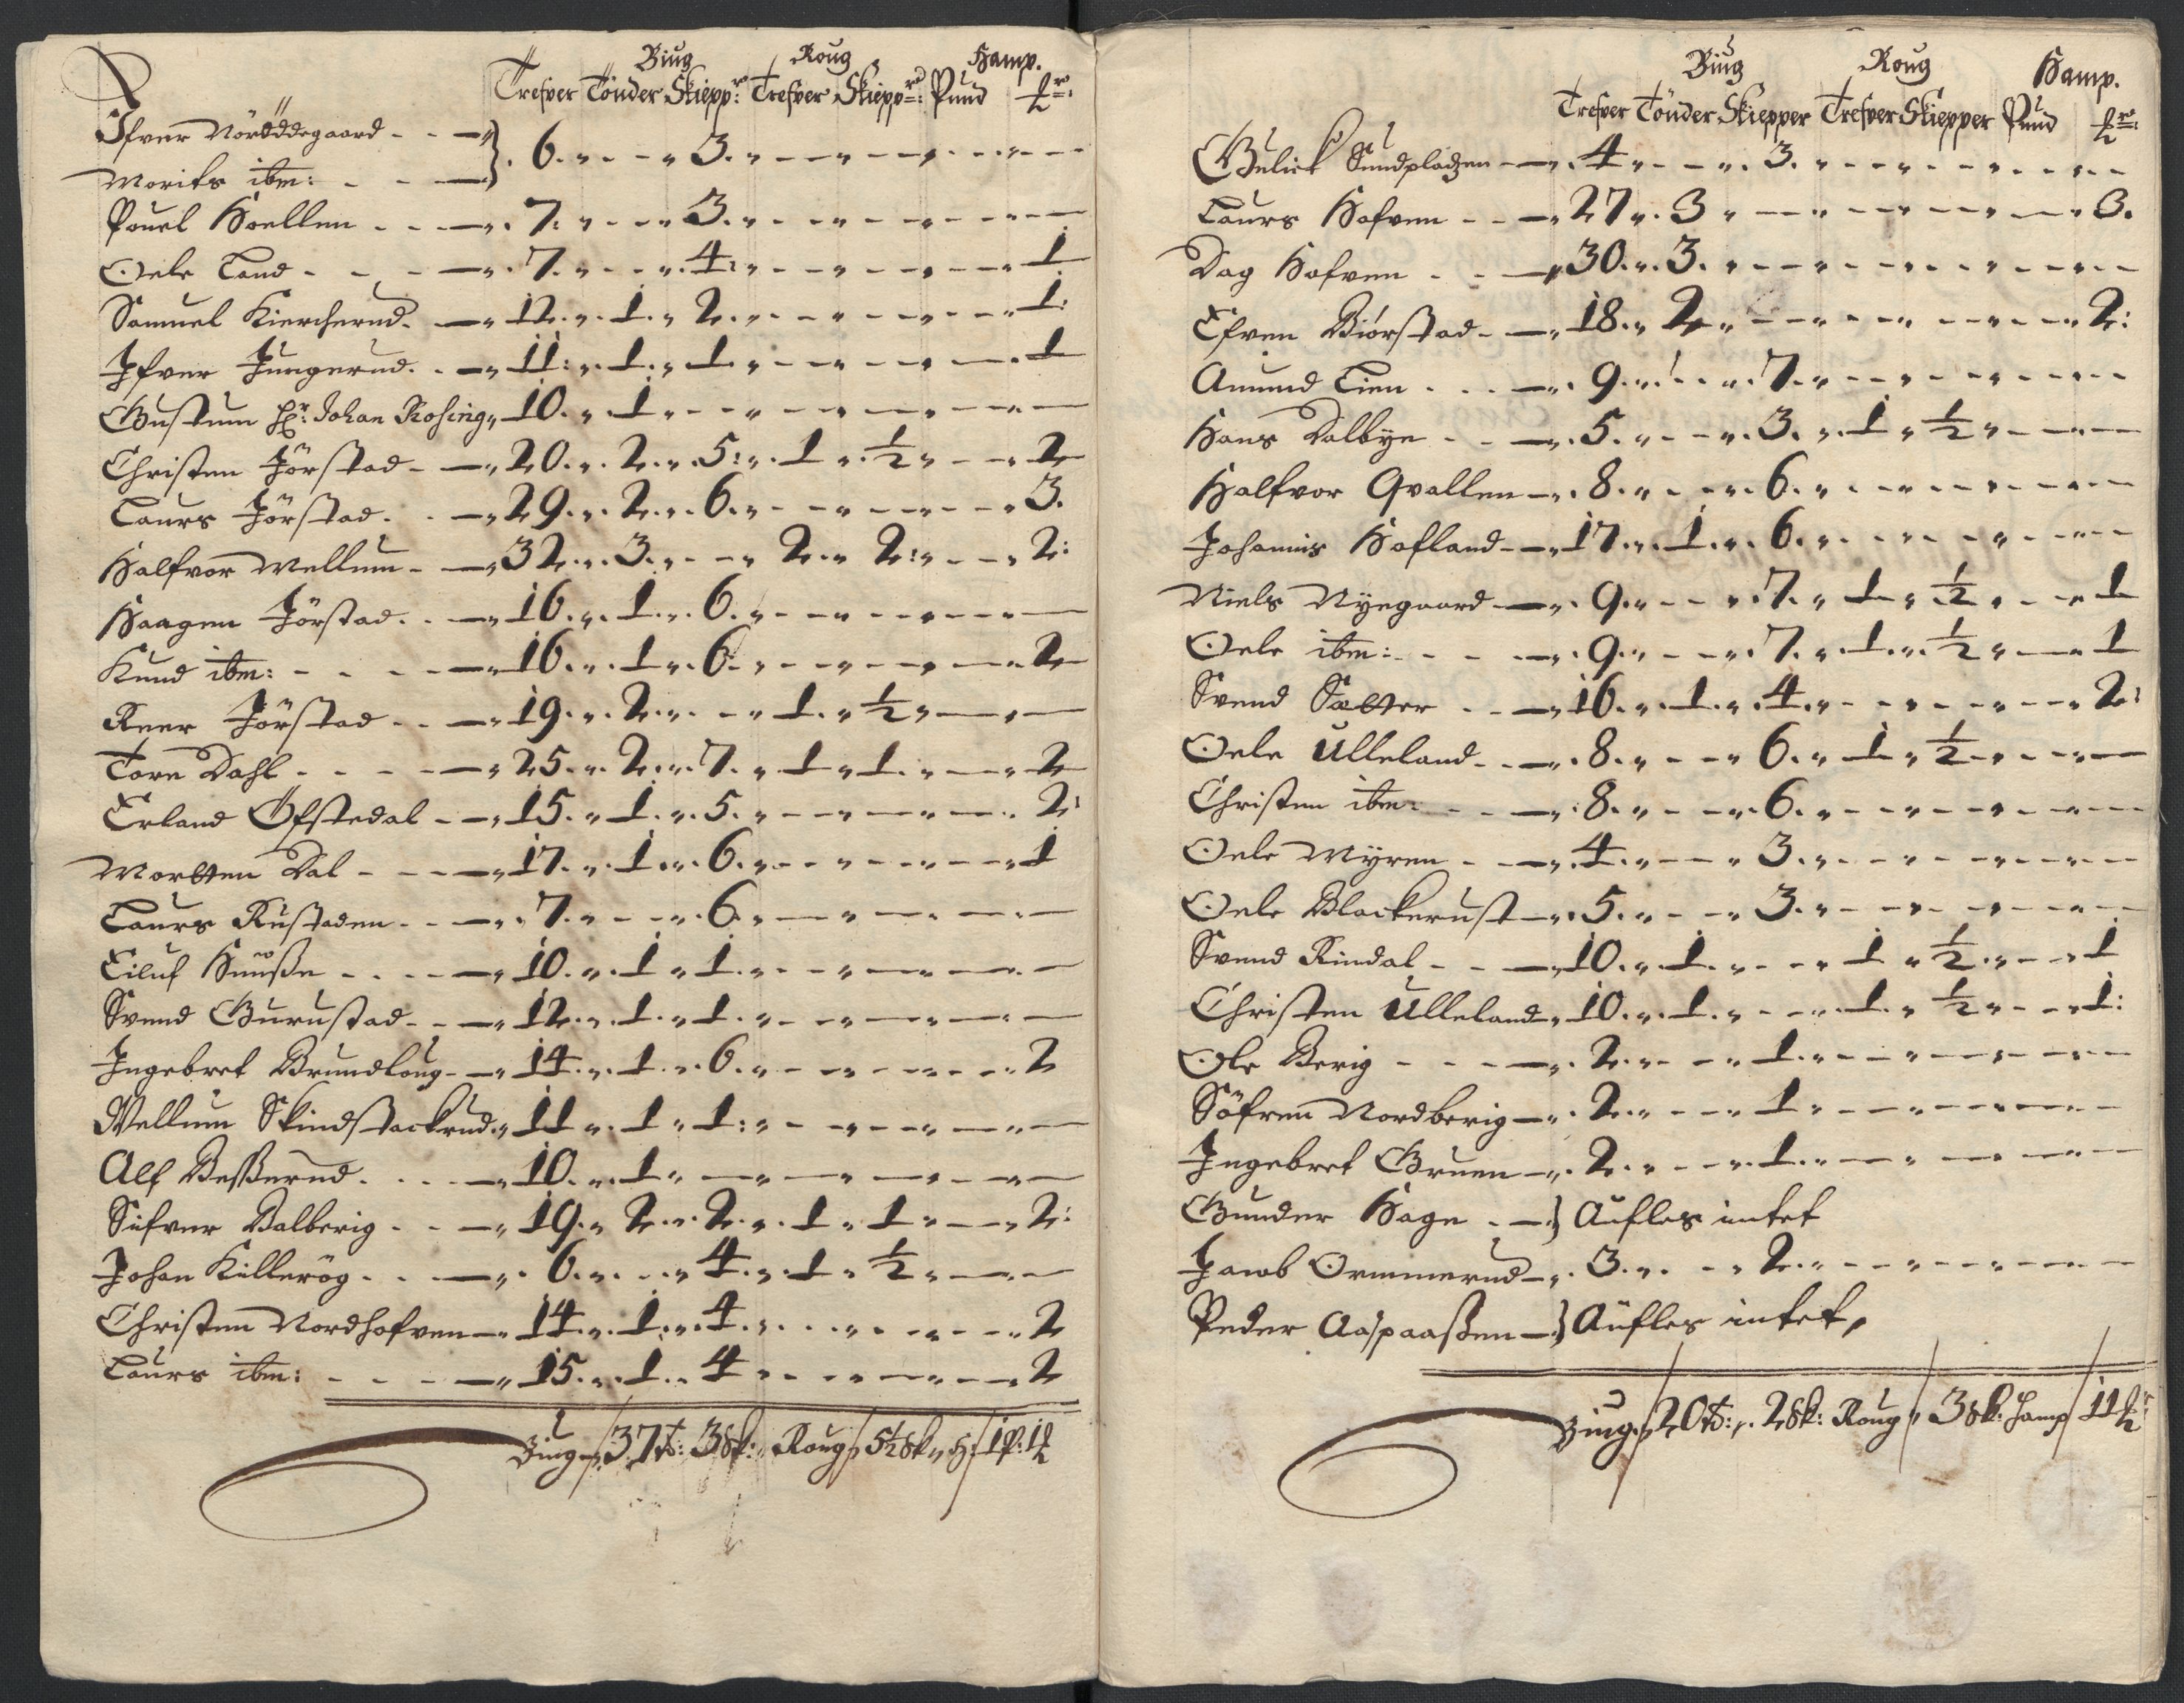 Biug Roug Hamp.
Trefver Tönder Skiepp: Trefver Skiepp: Pund
Ifver Nordddegaard - - — } . 6. „ - - „ 3. „
Morits ibm: - - —
Pouel Hoellen - - — „ 7. „ - - „ 3. „
Oele Land - - - — „ 7. „ - - „ 4. „ - - 1
Samuel Kiercherud. — „ 12. „ 1. „ 2. „ - - 1
Ifver Jungerud. — „ 11. „ 1. „ 1. „ - - 1
Gustum Hr: Johan Rosing „ 10. „ 1. „
Christen Jörstad - — „ 20. „ 2. „ 5. „ 1 „ ½ „ — 2
Laurs Jörstad. — „ 29. „ 2. „ 6. „ - - 3.
Halfvor Mellum - — „ 32. „ 3. „ - - „ 2. „ 2. „ — 2:
Haagen Jörstad. — „ 16. „ 1. „ 6. „
Knud ibm: - - - — „ 16. „ 1 „ 6. „ - - 2
Reer Jörstad - — „ 19. „ 2. „ - - „ 1. „ ½ „
Tore Dahl - - - — „ 25. „ 2. „ 7. „ 1 „ 1. „ — 2
Erland Öfstedal - — „ 15. „ 1. „ 5. „ - - 2:
Mortten Dal - - — „ 17. „ 1. „ 6. „ - - 1
Laurs Rustaden - - — „ 7. „ - - „ 6. „
Eiluf Huuße - - — „ 10. „ 1 „ 1. „
Svend Gurustad - - — „ 12. „ 1. „ 1. „
Ingebret Brundloug - — „ 14. „ 1. „ 6. „ - - 2
Mellum Skindstackrud „ 11 „ 1 „ 1: „
Alf Beßerud. - - — „ 10. „ 1. „
Sifver Dalberig - - — „ 19. „ 2. „ 2. „ 1 „ 1 „ — 2:
Johan Killerög - - — „ 6. „ - - „ 4. „ 1 „ ½ „
Christen Nordhofven — „ 14. „ 1. „ 4. „ - - 2
Laurs ibm: - - - — „ 15. „ 1. „ 4 „ - - 2
Biug / 37 td: 3 sk: „ Roug / 5½ sk „ H: / 1 p: 1
Biug Roug Hamp.
Trefver Tönder Skiepper Trefver Skiepper Pund
Gulick Sundpladzen — „ 4 „ - - „ 3. „
Laurs Hofven - - — „ 27 „ 3 „ - - 3.
Dag Hofven - - — „ 30. „ 3. „
Efven Biörstad - — „ 18. „ 2 „ - - 2:
Amund Lien - - — „ 9. „ - - „ 7. „
Hans Dalbye - - — „ 5. „ - - „ 3. „ 1 „ ½ „
Halfvor Qvallen — „ 8. „ - - „ 6. „
Johannis Hofland — „ 17. „ 1. „ 6. „
Niels Nyegaard — „ 9. „ - - „ 7. „ 1 „ ½ „ - 1
Oele ibm: - - — „ 9. „ - - „ 7. „ 1. „ ½ „ — 1
Svend Sætter - - — „ 16. „ 1. „ 4. „ - - 2:
Oele Ulleland - — „ 8. „ - - „ 6. „ 1 „ ½ „
Christen ibm: - - — „ 8. „ - - „ 6. „
Oele Myren - - — „ 4. „ — „ 3. „
Oele Blackerust — „ 5. „ - - „ 3. „
Svend Rindal - - — „ 10. „ 1. „ - - „ 1 „ ½ „ - 1
Christen Ulleland „ 10. „ 1. „ - - „ 1. „ ½ „ - 1:
Ole Berig - - — „ 2. „ - - „ 1. „
Söfren Nordberig — „ 2. „ - - „ 1 „
Ingebret Gruen — „ 2. „ - - „ 1. „
Gunder Hage - — } Aufles intet
Jacob Ormmerud — „ 3. „ - - „ 2. „
Peder Aaspaaßen — } Aufles intet,
Biug / 20 td: „ 2 sk: Roug / 3 sk: Hamp / 11